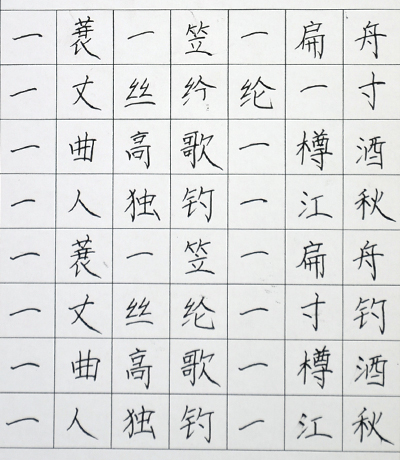 一蓑一笠一扁舟
一丈丝纶一寸
一曲高歌一樽酒
一人独钓一江秋
一蓑一笠一扁舟
一丈丝纶一寸钓
一曲高歌一樽酒
一人独钓一江秋